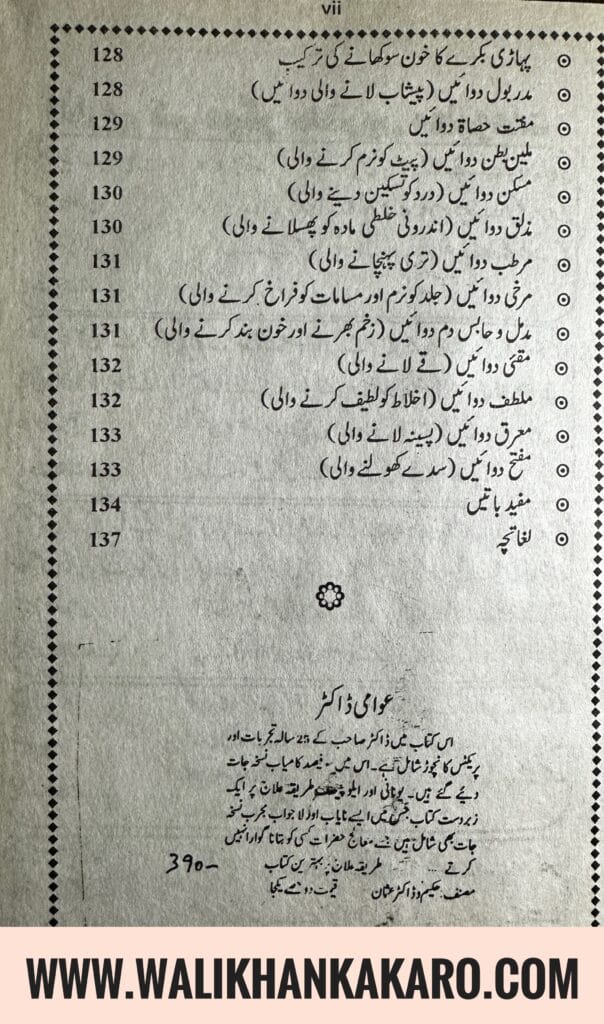 vii
پہاڑی بکرے کا خون سوکھانے کی ترکیب 128
مدر بول دوائیں (پیشاب لانے والی دوائیں) 128
مفتت حصاۃ دوائیں 129
ملین بطن دوائیں (پیٹ کو نرم کرنے والی) 129
مسکن دوائیں (درد کو تسکین دینے والی) 130
مزلق دوائیں (اندرونی خلطی مادہ کو پھسلانے والی) 130
مرطب دوائیں (تری پہنچانے والی) 131
مرخی دوائیں (جلد کو نرم اور مسامات کو فراخ کرنے والی) 131
مدمل و حابس دم دوائیں (زخم بھرنے اور خون بند کرنے والی) 131
مقئی دوائیں (قے لانے والی) 132
ملطف دوائیں (اخلاط کو لطیف کرنے والی) 132
معرق دوائیں (پسینہ لانے والی) 133
مفتح دوائیں (سدے کھولنے والی) 133
مفید باتیں 134
لغاتچہ 137
عوامی ڈاکٹر
اس کتاب میں ڈاکٹر صاحب کے 25 سالہ تجربات اور
پریکٹس کا نچوڑ شامل ہے۔ اس میں فیصد کامیاب نسخہ جات
دیئے گئے ہیں۔ یونانی اور طریقہ علاج پر ایک
زبردست کتاب جس میں ایسے نایاب اور لاجواب مجرب نسخہ
جات بھی شامل ہیں جسے معالج حضرات کسی کو بتانا گوارا نہیں
کرتے طریقہ علاج پر بہترین کتاب
390-
مصنف۔ حکیم و ڈاکٹر عثمان قیمت دو حصے یکجا
WWW.WALIKHANKAKARO.COM